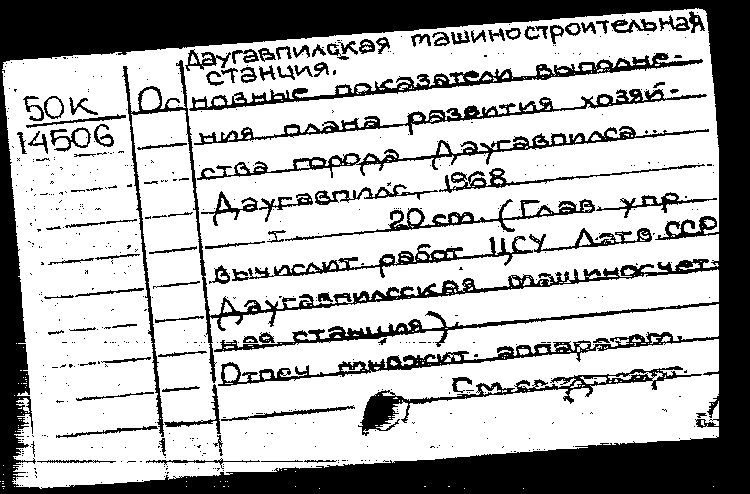 Даугавпилская машиностроительная
станция.
50к
14506
Основные показатели выполне-
ния плана развития хозяй-
ства города Даугавпилса...
Даугавпилс, 1968
т. 20 см. (Глав. упр.
вычислит. работ ЦСУ Латв.ССР
Даугавпилсская машиносчет-
ная станция).
Отпеч. множит. аппаратом.
См. след. карт.